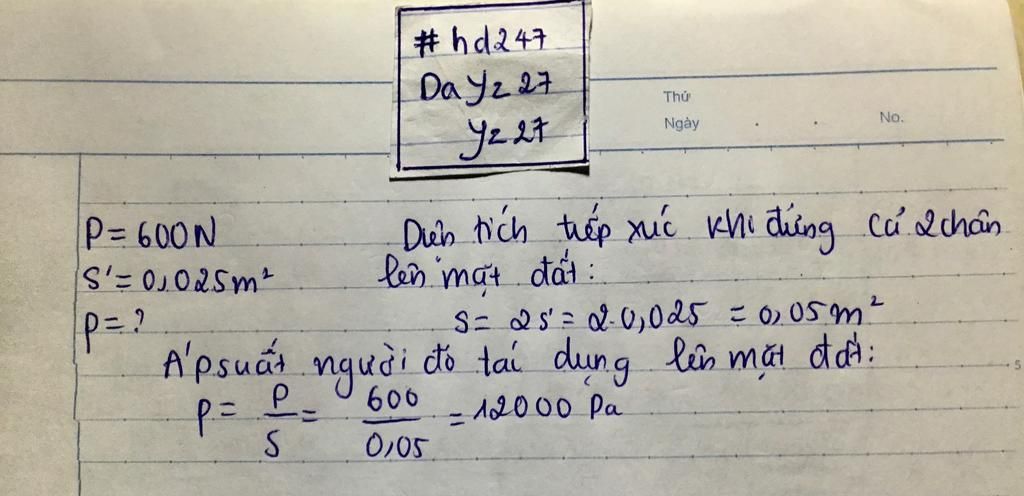 #hd247
Dayz27
yz27
Thứ
Ngày . .
No.
P=600N
S'=0,025m²
p=?
Diện tích tiếp xúc khi đứng cả 2 chân
lên mặt đất:
S= 2S'= 2.0,025 = 0,05m²
Áp suất người đó tác dụng lên mặt đất:
p= P/S = 600/0,05 = 12000 Pa
5